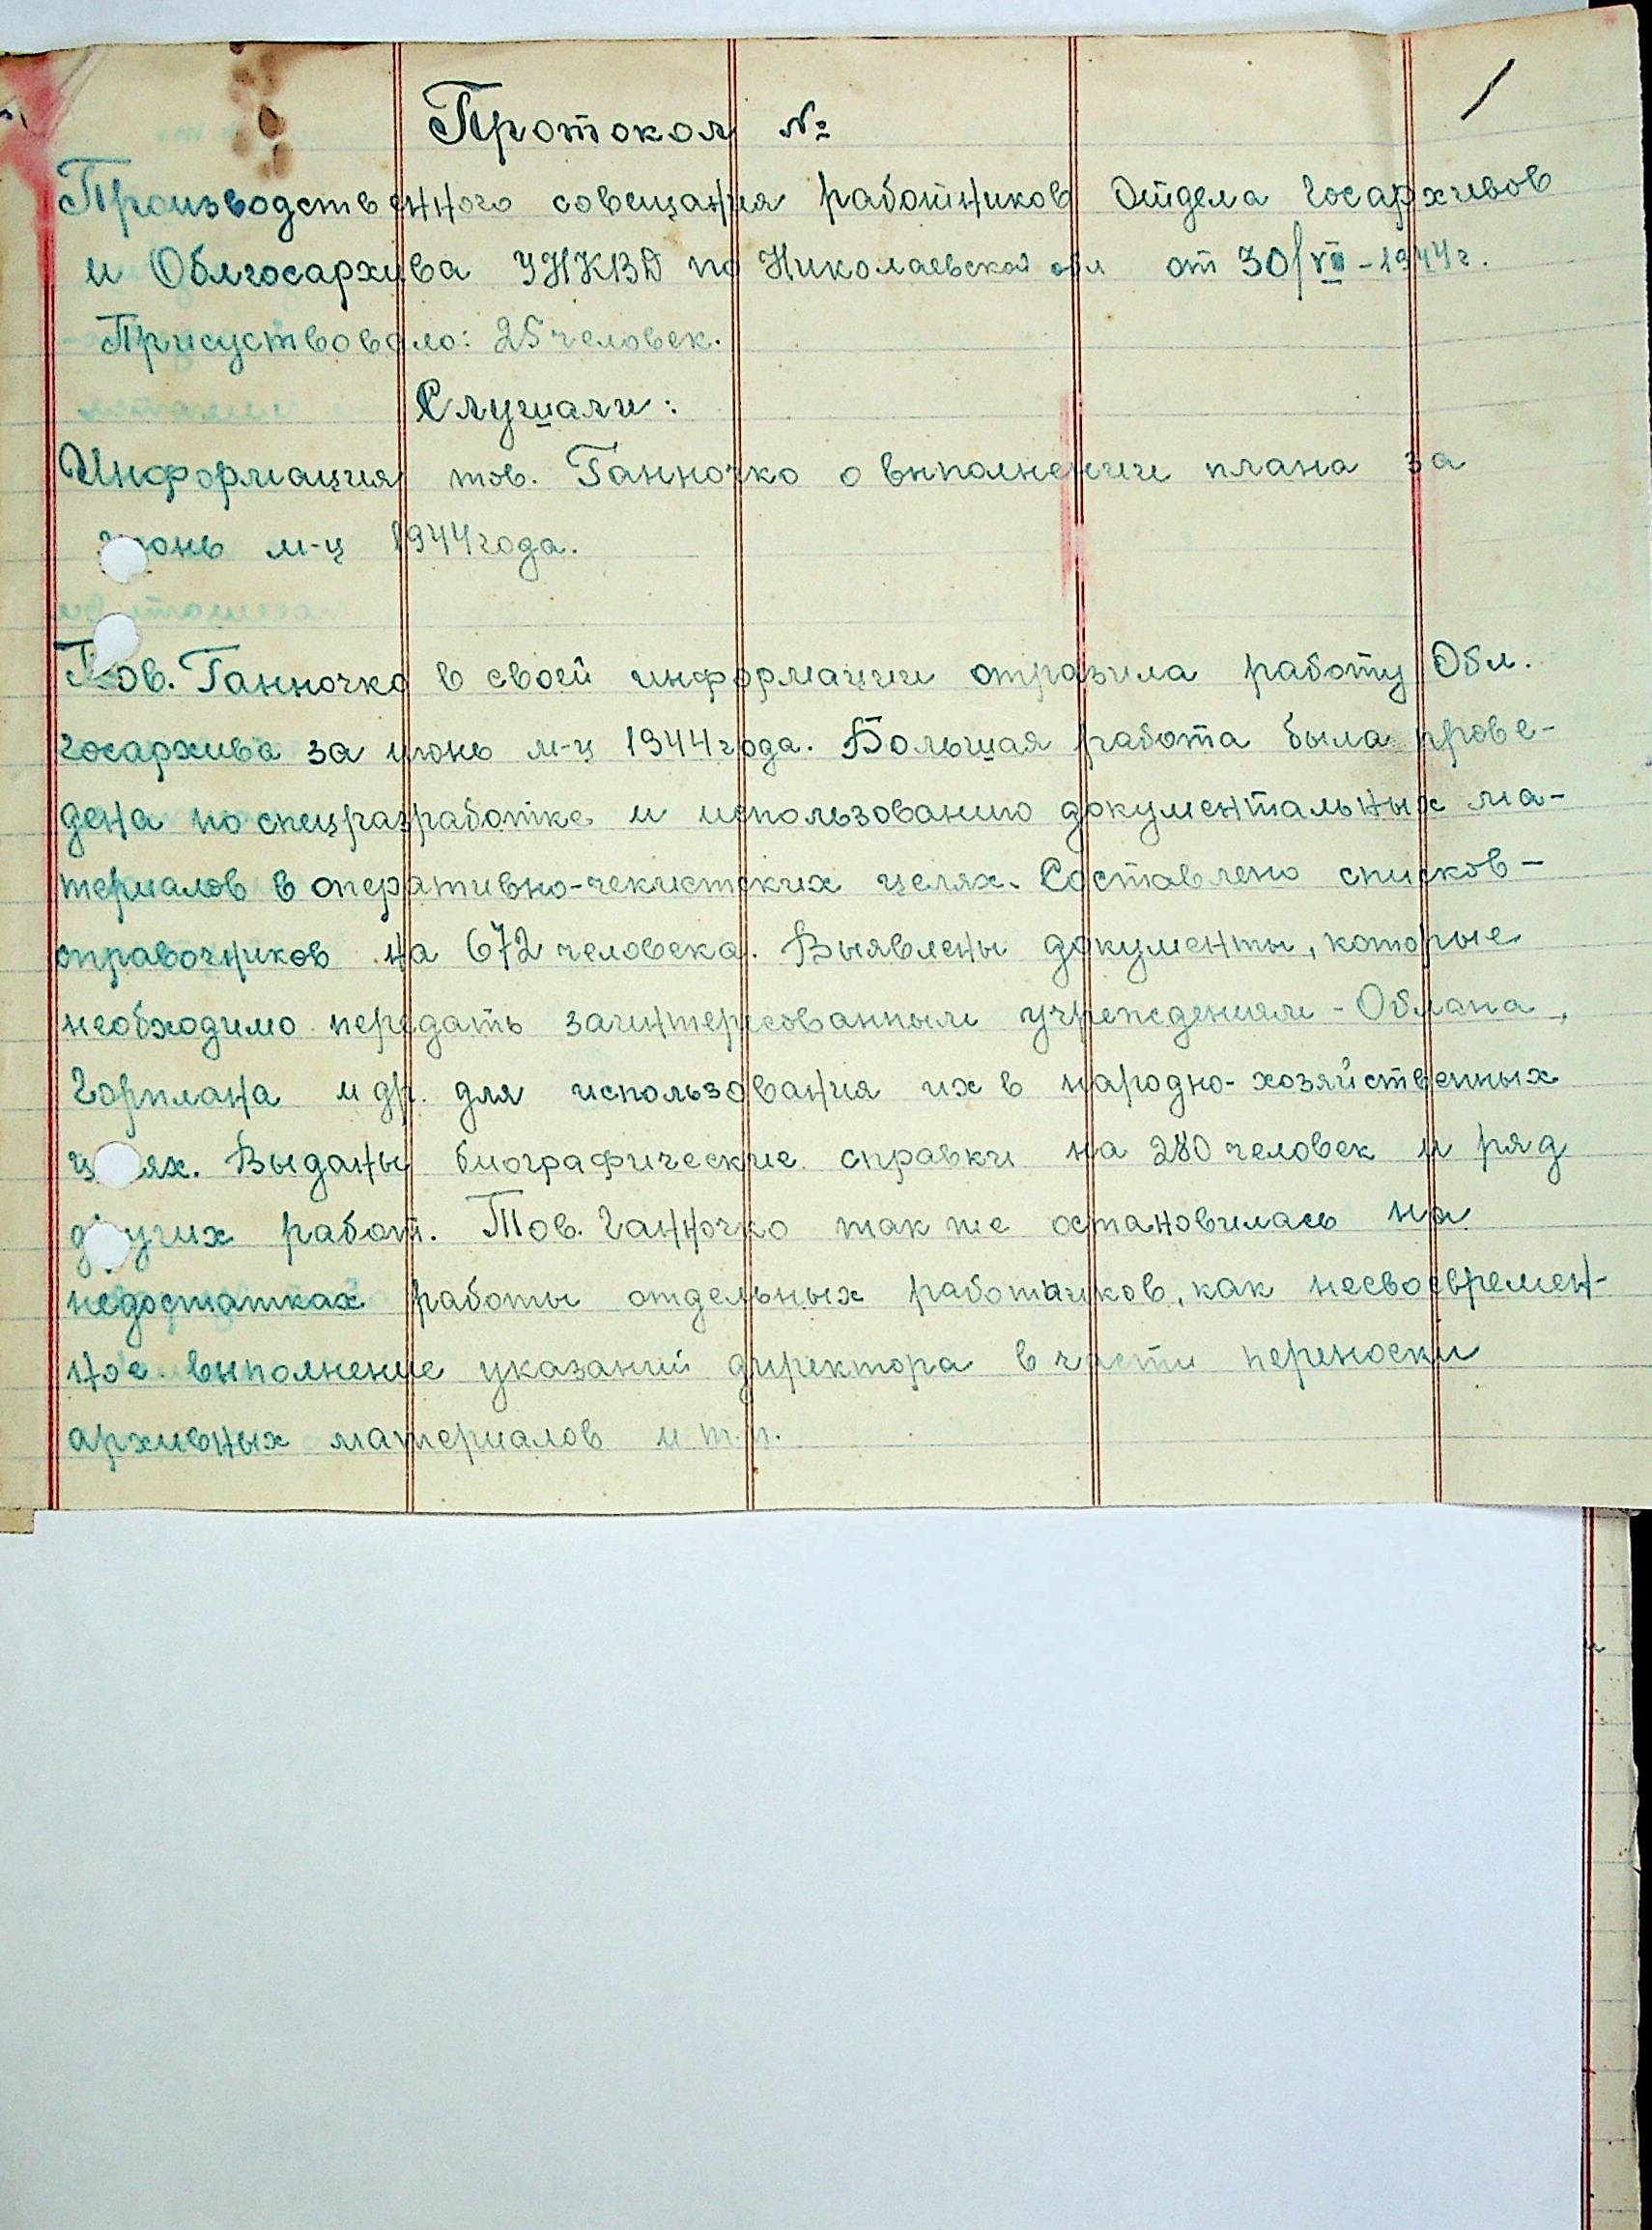 /
Протокол №
Производственного совещания работников Отдела Госархивов
и Облгосархива УНКВД по Николаевской обл от 30/VII-1944г.
Присуствовало: 25 человек.
Слушали:
Информация тов. Ганночко о выполнении плана за
июнь м-ц 1944 года.
Тов. Ганночко в своей информации отразила работу Обл.
госархива за июнь м-ц 1944 года. Большая работа была прове-
дена по спецразработке и использованию документальных ма-
териалов в оперативно-чекистских целях. Составлено списков-
справочников на 672 человека. Выявлены документы, которые
необходимо передать заинтересованным учреждениям - Облпана,
Горплана и др. для использования их в народно-хозяйственных
целях. Выданы биографические справки на 280 человек и ряд
других работ. Тов. Ганночко так же остановилась на
недостатках работы отдельных работников, как несвоевремен-
ное выполнение указаний директора в части переноски
архивных материалов и т.п.